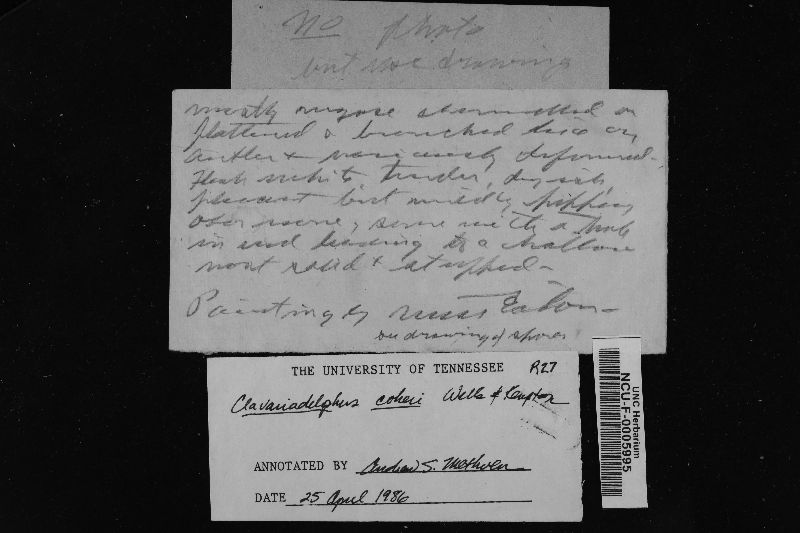 No photo
but see drawing
mostly rugose channelled or
flattened & branched like an
antler & variously deformed.
Flesh white, tender, dryish,
pleasant but mildly peppery
odor none, some with a hole
in end leading to a hollow
most solid & stuffed -
Painting by Miss Eaton -
see drawing of spores
THE UNIVERSITY OF TENNESSEE R27
Clavariadelphus cokeri Wells & Kempton
ANNOTATED BY Andrew S. Methven
DATE 25 April 1986
UNC Herbarium
NCU-F-0005995